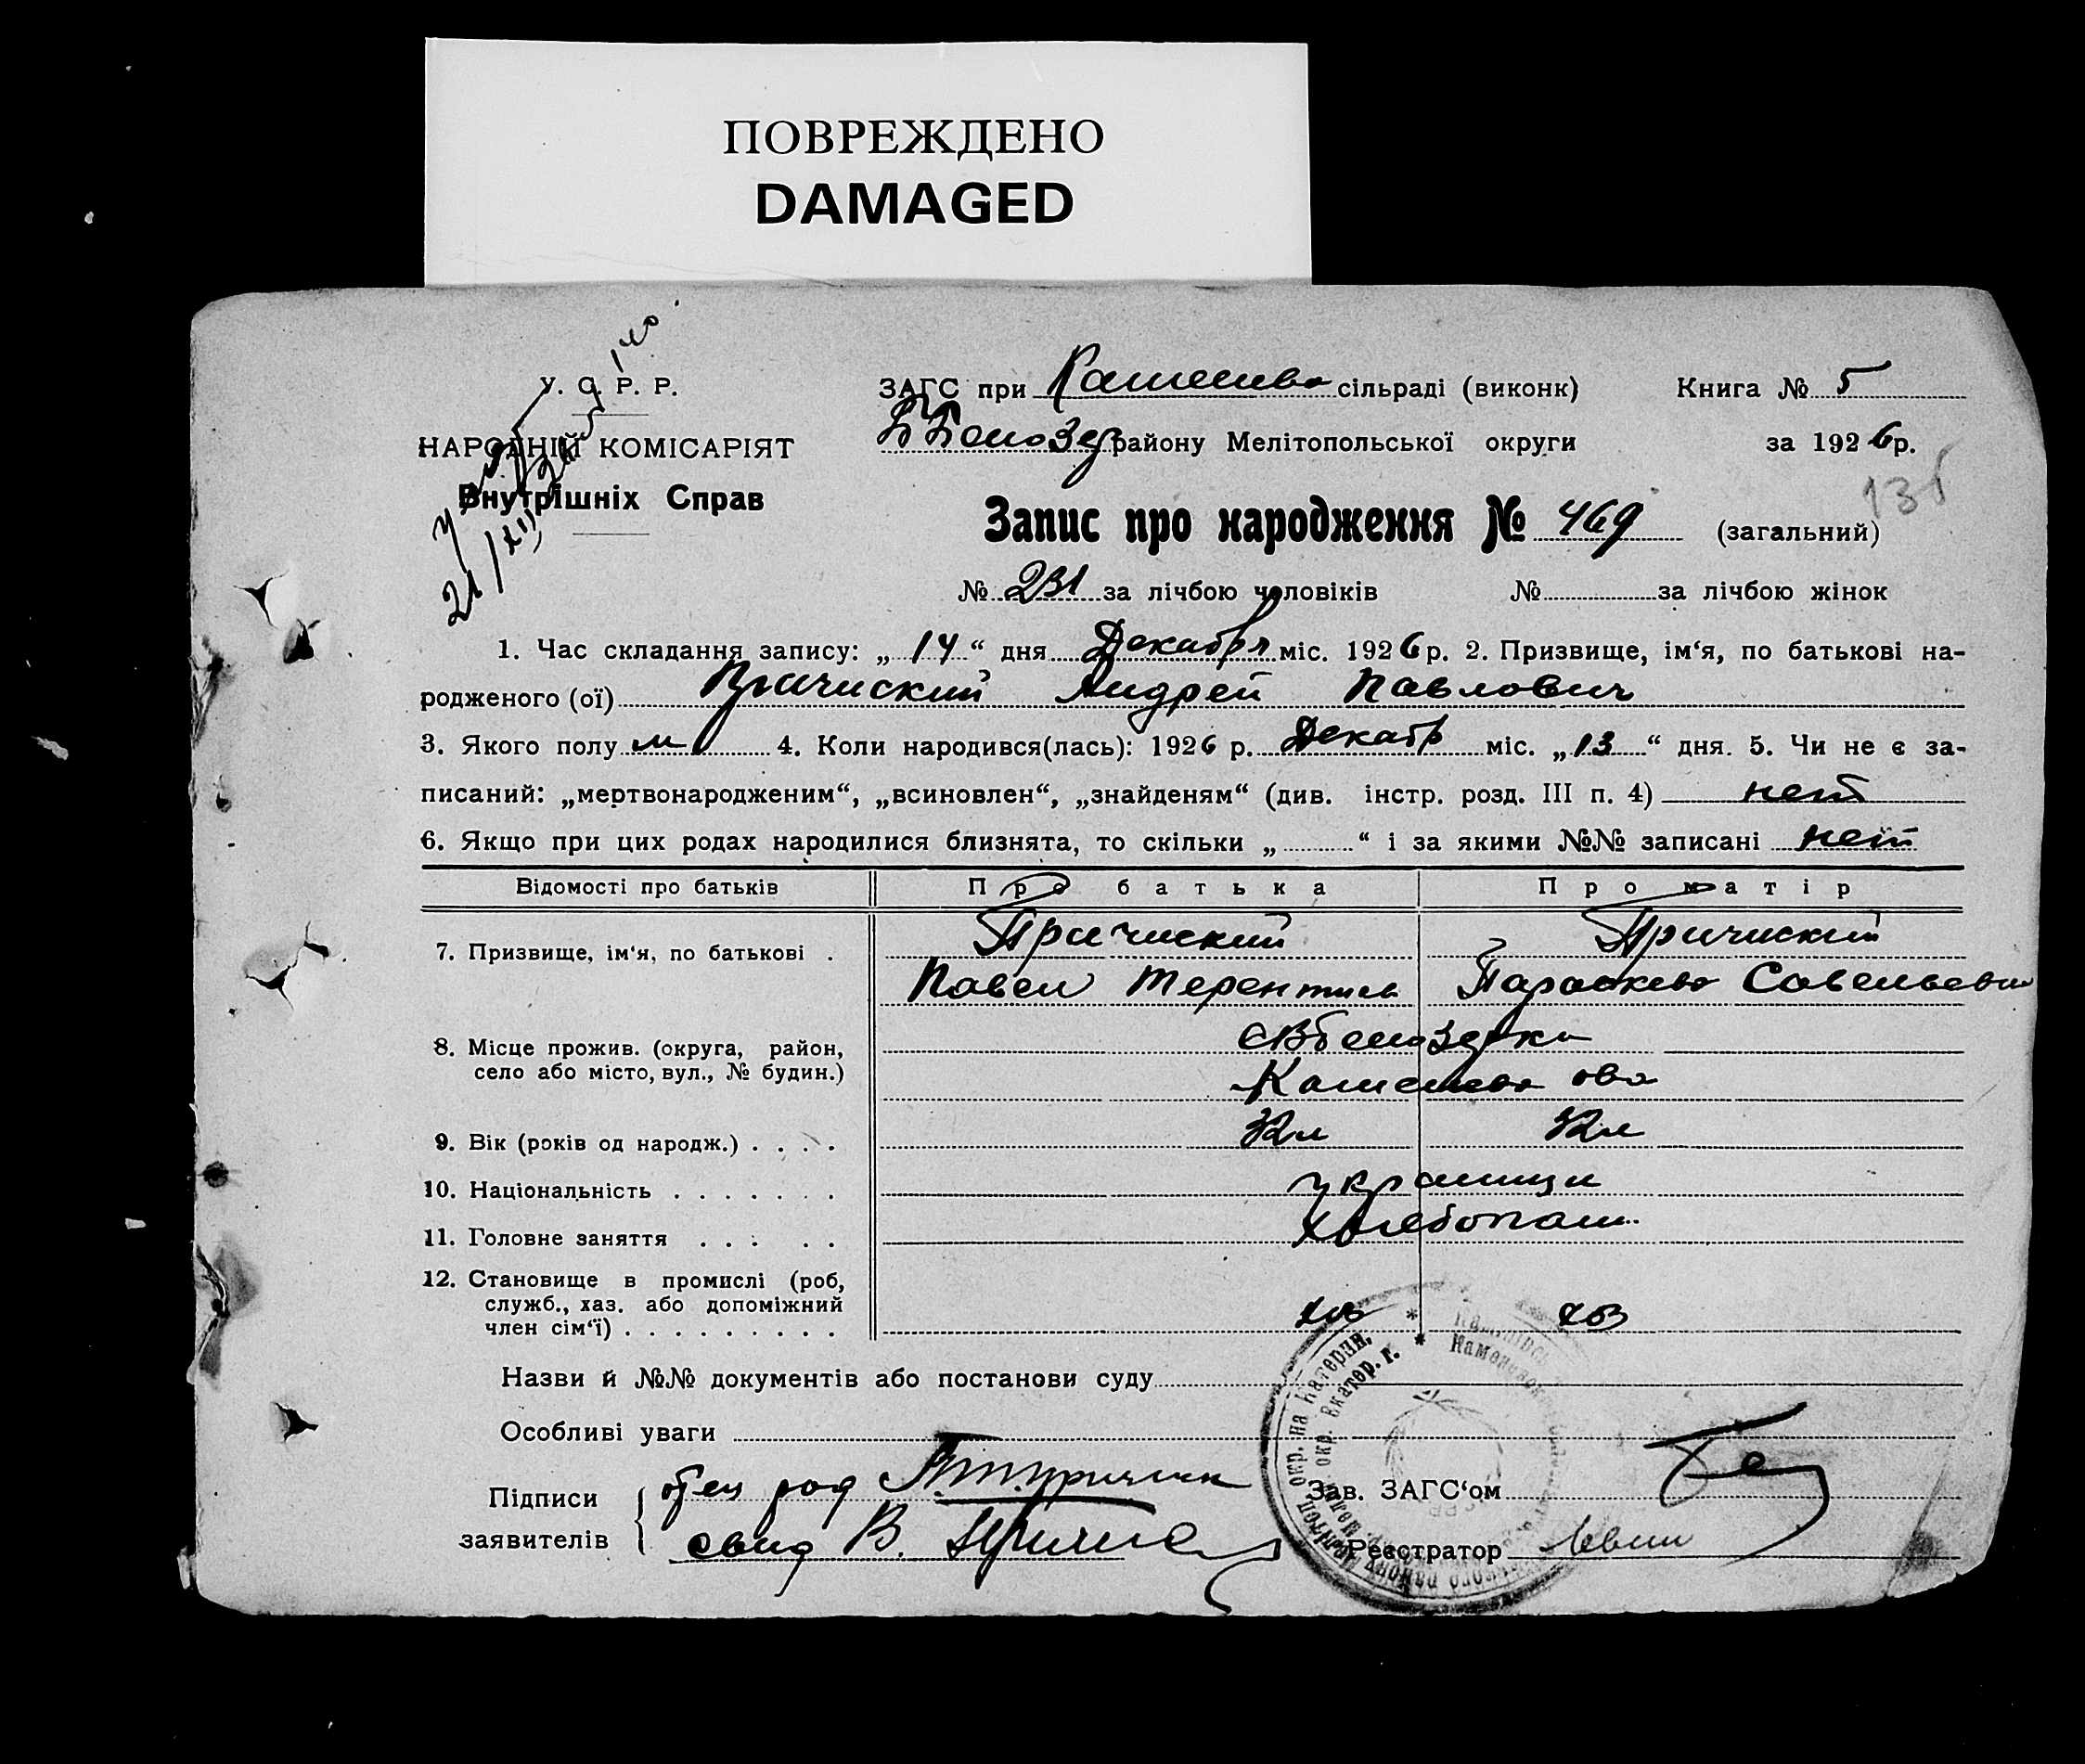 ПОВРЕЖДЕНО
DAMAGED
У. С. Р. Р.
НАРОДНІЙ КОМІСАРІЯТ
Внутрішніх Справ
21/XII
ЗАГС при сільраді (виконк) Книга № 5
району Мелітопольської округи за 1926 р.
Запис про народження № 469 (загальний)
№ 231 за лічбою чоловіків № за лічбою жінок
1. Час складання запису: „14“ дня Декабря міс. 1926 р. 2. Призвище, ім‘я, по батькові на-
родженого (ої) Андрей Павлович
3. Якого полу м 4. Коли народився(лась): 1926 р. Декабр міс. „13“ дня. 5. Чи не є за-
писаний: „мертвонародженим“, „всиновлен“, „знайденям“ (див. інстр. розд. III п. 4) нет
6. Якщо при цих родах народилися близнята, то скільки „ “ і за якими №№ записані нет
Відомості про батьків Про батька Про матір
7. Призвище, ім‘я, по батькові .
Павел Терентиев Параскева Савельевна
8. Місце прожив. (округа, район,
село або місто, вул., № будин.)
9. Вік (років од народж.) . . . . 32л 32л
10. Національність . . . . . . . украинци
11. Головне заняття . . . . . хлебопаш.
12. Становище в промислі (роб,
служб., хаз. або допоміжний
член сім‘ї) . . . . . . . . . хоз хоз
Назви й №№ документів або постанови суду
Особливі уваги
Підписи
заявителів
отец род
свид В.
Зав. ЗАГС‘ом
Реєстратор